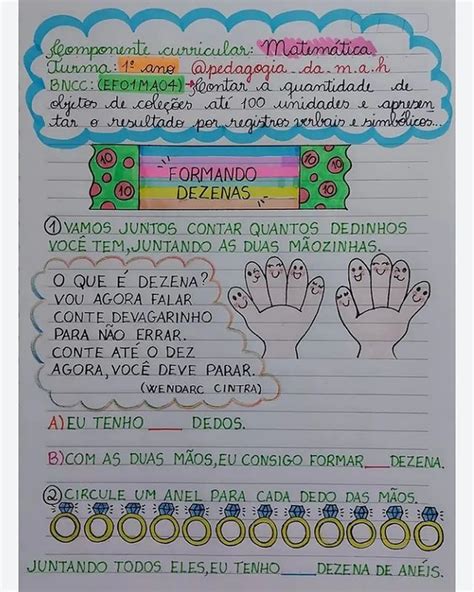 Componente curricular: Matemática
Turma: 1º ano @pedagogia_da_m.a.h
BNCC: (EF01MA04)→Contar a quantidade de
objetos de coleções até 100 unidades e apresen
tar o resultado por registros verbais e simbólicos...
10 10
FORMANDO
DEZENAS
10 10
1 VAMOS JUNTOS CONTAR QUANTOS DEDINHOS
VOCÊ TEM, JUNTANDO AS DUAS MÃOZINHAS.
O QUE É DEZENA?
VOU AGORA FALAR
CONTE DEVAGARINHO
PARA NÃO ERRAR.
CONTE ATÉ O DEZ
AGORA, VOCÊ DEVE PARAR.
(WENDARC CINTRA)
A) EU TENHO ____ DEDOS.
B) COM AS DUAS MÃOS, EU CONSIGO FORMAR ___ DEZENA.
2 CIRCULE UM ANEL PARA CADA DEDO DAS MÃOS.
JUNTANDO TODOS ELES, EU TENHO ____ DEZENA DE ANÉIS.